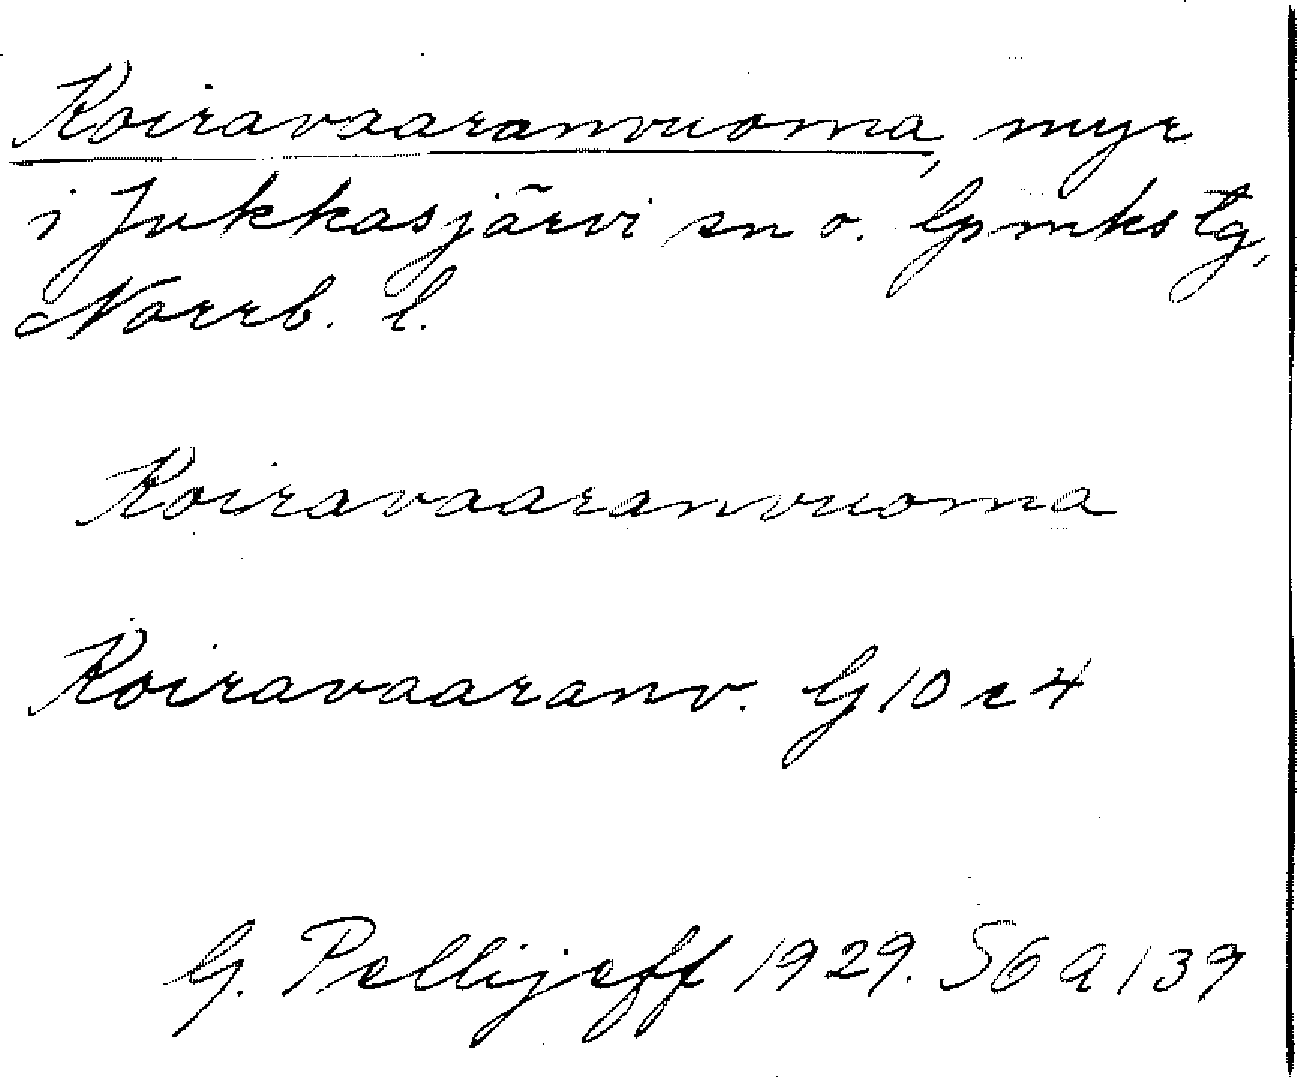 Koiravaaranvuoma, myr
i Jukkasjärvi sn o. lpmkstg,
Norrb. l.
Koiravaaranvuoma
Koiravaaranv. G 10 c 4
G. Pellijeff 1929. S6 a 139